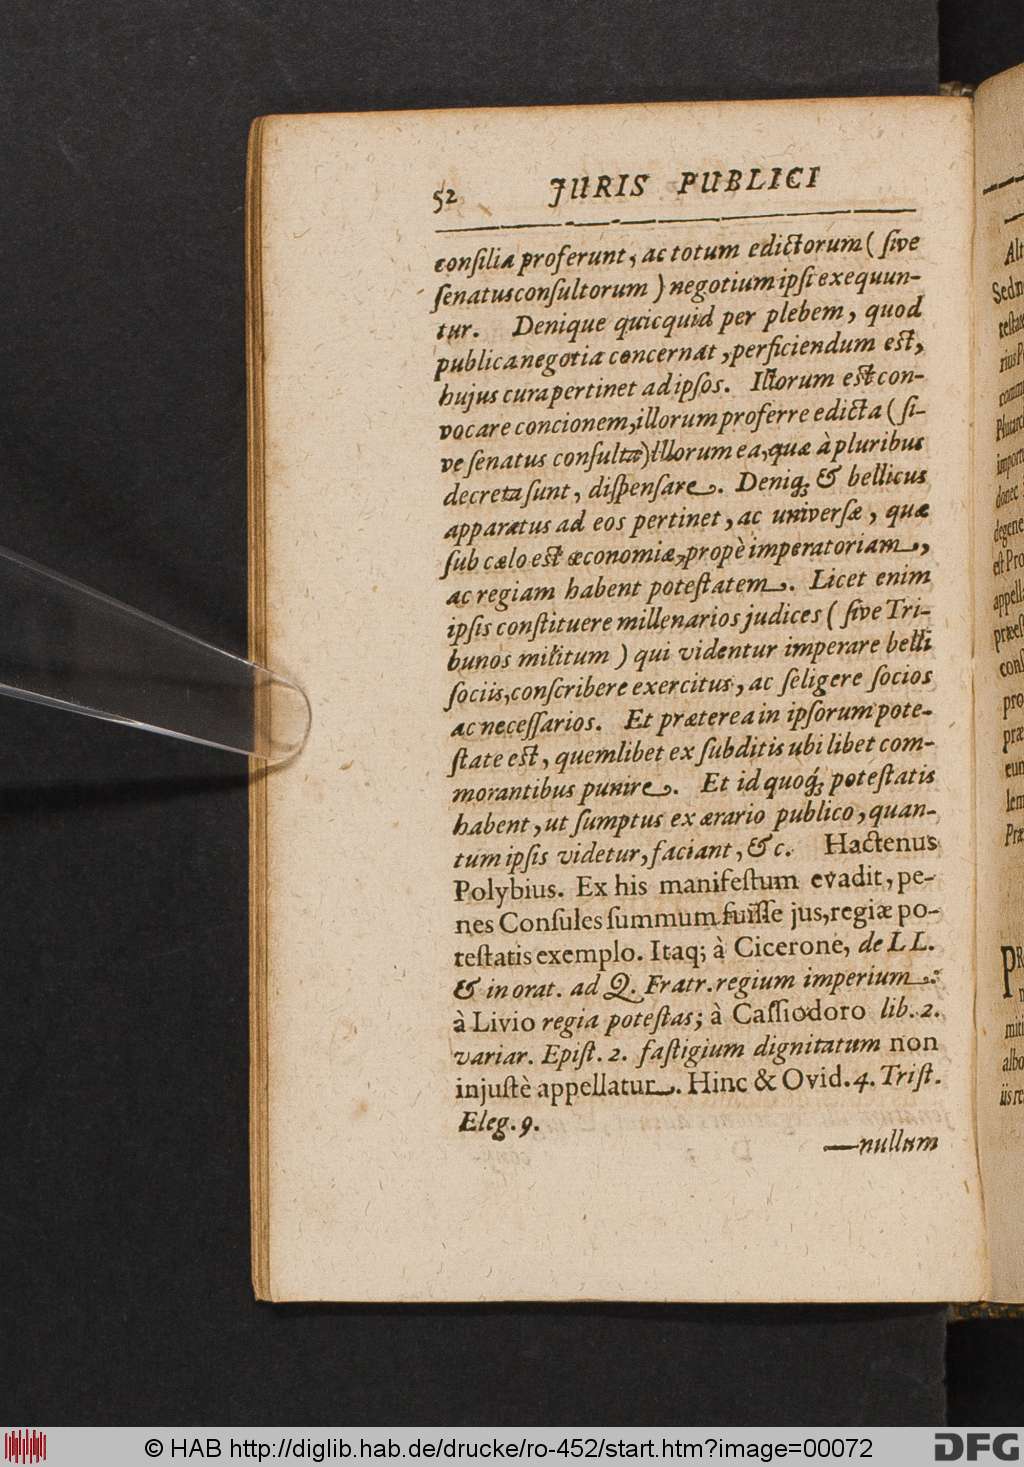 52 JURIS PUBLICI
consilia proferunt, ac totum edictorum ( sive
senatusconsultorum ) negotium ipsi exequun-
tur. Denique quicquid per plebem, quod
publica negotia concernat, perficiendum est,
hujus cura pertinet ad ipsos. Illorum est con-
vocare concionem, illorum proferre edicta ( si-
ve senatus consulta) illorum ea, quæ à pluribus
decreta sunt, dispensare. Deniq; & bellicus
apparatus ad eos pertinet, ac universæ, quæ
sub cælo est œconomiæ, propè imperatoriam,
ac regiam habent potestatem. Licet enim
ipsis constituere millenarios judices ( sive Tri-
bunos militum ) qui videntur imperare belli
sociis, conscribere exercitus, ac seligere socios
ac necessarios. Et præterea in ipsorum pote-
state est, quemlibet ex subditis ubi libet com-
morantibus punire. Et id quoq́; potestatis
habent, ut sumptus ex ærario publico, quan-
tum ipsis videtur, faciant, &c. Hactenus
Polybius. Ex his manifestum evadit, pe-
nes Consules summum fuisse jus, regiæ po-
testatis exemplo. Itaq; à Cicerone, de LL.
& in orat. ad Q. Fratr. regium imperium:
à Livio regia potestas; à Cassiodoro lib. 2.
variar. Epist. 2. fastigium dignitatum non
injustè appellatur. Hinc & Ovid. 4. Trist.
Eleg. 9.
—nullum
Alt
Sedn
est Pro
cons
pro
præ
eun
lem
Præ
PR
miti
albo
iis re
© HAB http://diglib.hab.de/drucke/ro-452/start.htm?image=00072
DFG